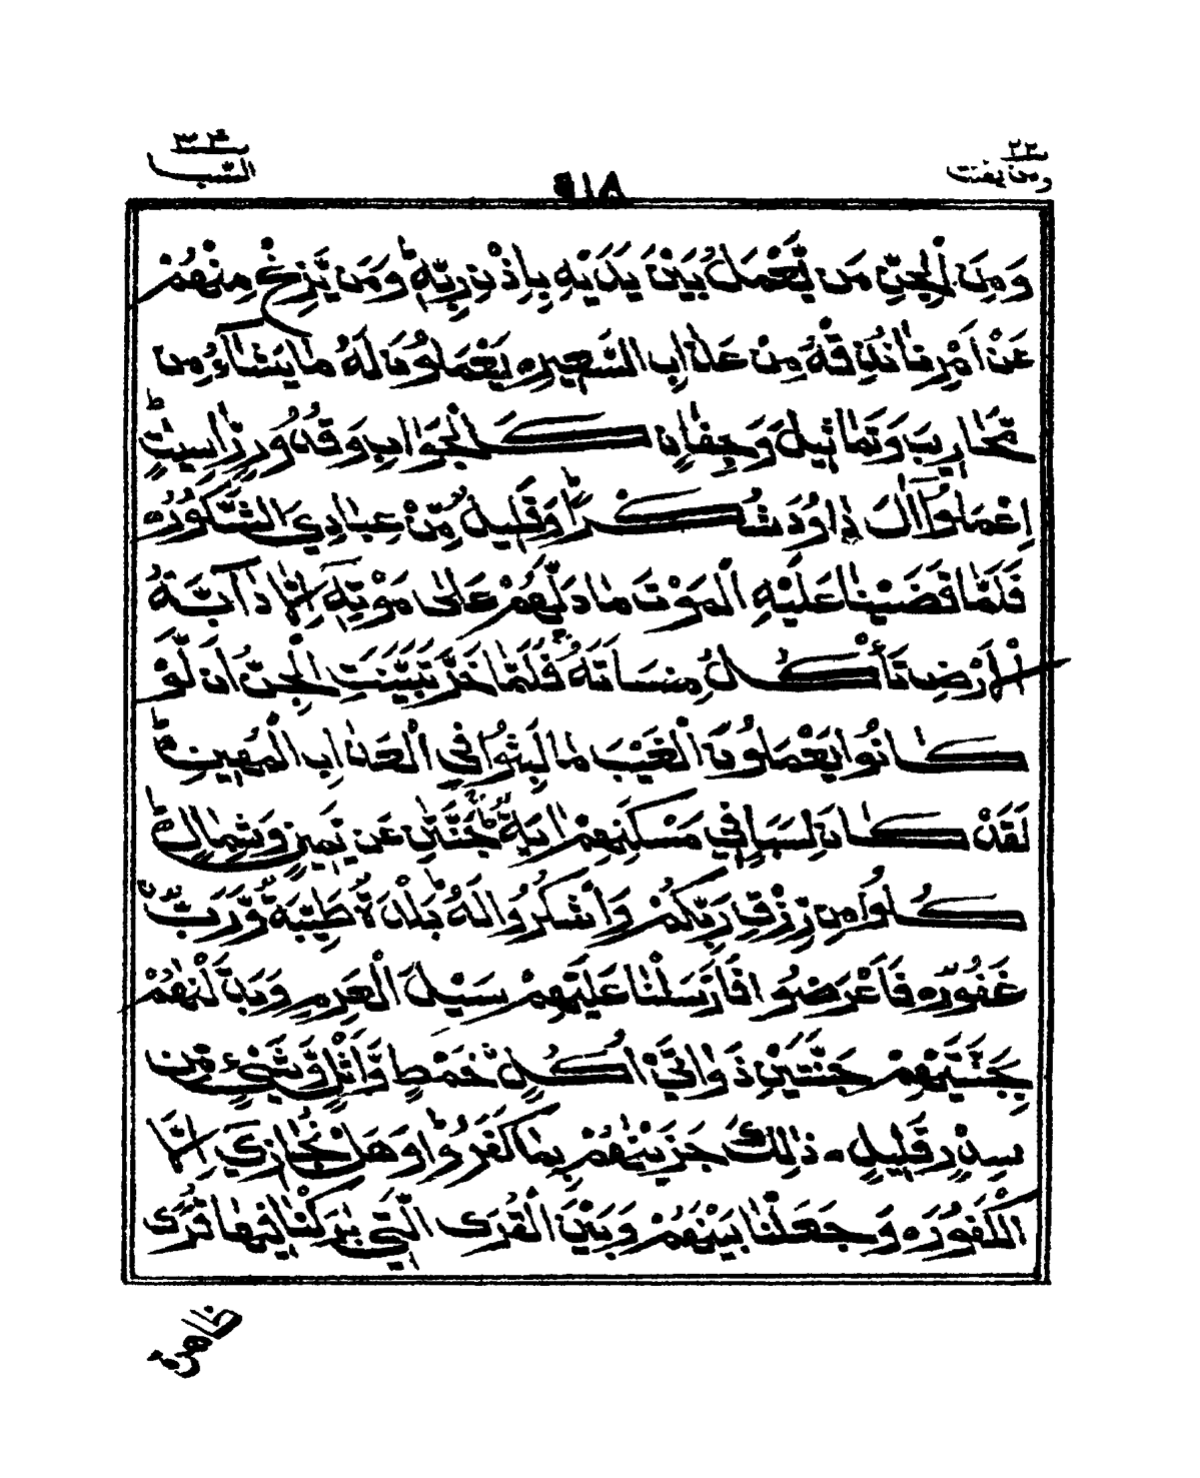 ۲۲
ومن يقنت
۹۱۸
۳۴
السبا
وَمِنَ الْجِنِّ مَن يَّعْمَلُ بَيْنَ يَدَيْهِ بِإِذْنِ رَبِّهِ ۖ وَمَن يَّزِغْ مِنْهُمْ
عَنْ أَمْرِنَا نُذِقْهُ مِنْ عَذَابِ السَّعِيرِ ۝ يَعْمَلُونَ لَهُ مَا يَشَاءُ مِن
مَّحَارِيبَ وَتَمَاثِيلَ وَجِفَانٍ كَالْجَوَابِ وَقُدُورٍ رَّاسِيٰتٍ ۚ
اِعْمَلُوا آلَ دَاوُدَ شُكْرًا ۚ وَقَلِيلٌ مِّنْ عِبَادِيَ الشَّكُورُ ۝
فَلَمَّا قَضَيْنَا عَلَيْهِ الْمَوْتَ مَا دَلَّهُمْ عَلَىٰ مَوْتِهِ إِلَّا دَآبَّةُ
الْأَرْضِ تَأْكُلُ مِنسَأَتَهُ ۚ فَلَمَّا خَرَّ تَبَيَّنَتِ الْجِنُّ أَن لَّوْ
كَانُوا يَعْمَلُونَ الْغَيْبَ مَا لَبِثُوا فِي الْعَذَابِ الْمُهِينِ ۚ
لَقَدْ كَانَ لِسَبَإٍ فِي مَسْكَنِهِمْ اٰيَةٌ ۚ جَنَّتٰنِ عَن يَّمِينٍ وَّشِمَالٍ ۚ
كُلُوا مِن رِّزْقِ رَبِّكُمْ وَاشْكُرُوا لَهُ ۚ بَلْدَةٌ طَيِّبَةٌ وَّرَبٌّ
غَفُورٌ ۝ فَأَعْرَضُوا فَأَرْسَلْنَا عَلَيْهِمْ سَيْلَ الْعَرِمِ وَبَدَّلْنٰهُمْ
بِجَنَّتَيْهِمْ جَنَّتَيْنِ ذَوَاتَيْ أُكُلٍ خَمْطٍ وَّأَثْلٍ وَّشَيْءٍ مِّن
سِدْرٍ قَلِيلٍ ۝ ذٰلِكَ جَزَيْنٰهُمْ بِمَا كَفَرُوا ۚ وَهَلْ نُجَازِي إِلَّا
الْكَفُورَ ۝ وَجَعَلْنَا بَيْنَهُمْ وَبَيْنَ الْقُرَى الَّتِي بٰرَكْنَا فِيهَا قُرًى
ظاهرة